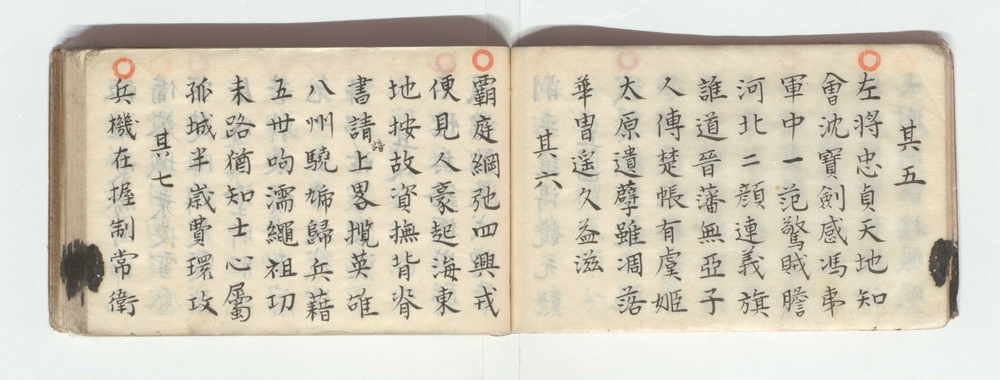 其五
左將忠貞天地知
會沈寶劍感馮夷
軍中一范驚賊膽
河北二顏連義旗
誰道晉藩無亞子
人傳楚帳有虞姬
太原遺孽雖凋落
華冑遥久益滋
其六
霸庭綱弛血興戎
便見人豪起海東
地按故資撫背脊
書請上畧攬英雄
諳
八州驍歸兵藉
五世呴濡繩祖功
末路猶知士心屬
孤城半歲費環攻
其七
兵機在握制常衛